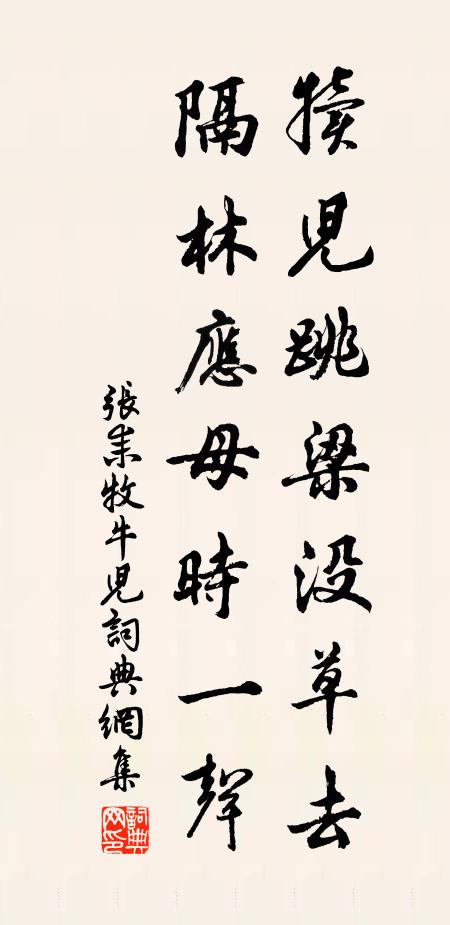 犢兒跳梁沒草去
隔林應母時一聲
張耒牧牛兒詞典網集
詞典网印